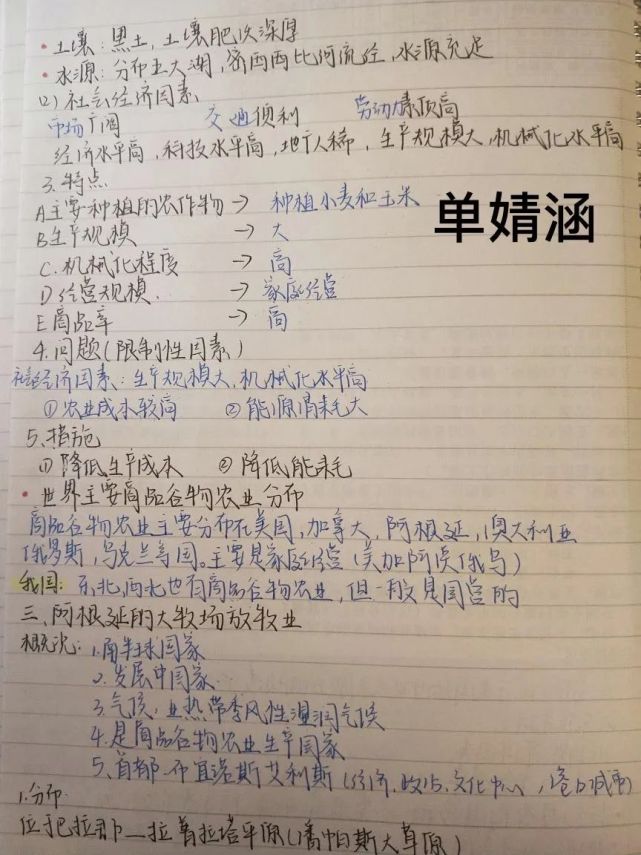 •土壤：黑土，土壤肥沃深厚
•水源：分布五大湖，密西西比河流经，水源充足
(2)社会经济因素
市场广阔 交通便利 劳动力素质高
经济水平高，科技水平高，地广人稀，生产规模大，机械化水平高
3.特点
A主要种植的农作物→ 种植小麦和玉米
单婧涵
B生产规模 → 大
C.机械化程度 → 高
D经营规模. → 家庭经营
E商品率 → 高
4.问题(限制性因素)
社会经济因素：生产规模大，机械化水平高
①农业成本较高 ②能源消耗大
5、措施
①降低生产成本 ②降低能耗
•世界主要商品谷物农业分布
商品谷物农业主要分布在美国，加拿大，阿根廷，澳大利亚
俄罗斯，乌克兰等国。主要是家庭经营(美加阿澳俄乌)
我国：东北，西北也有商品谷物农业，但一般是国营的
三、阿根廷的大牧场放牧业
概况：1.南半球国家
2.发展中国家
3.气候：亚热带季风性湿润气候
4.是商品谷物农业生产国家
5、首都-布宜诺斯艾利斯(经济，政治，文化中心，港口城市)
1.分布
位于把拉那—拉普拉塔平原(潘帕斯大草原)